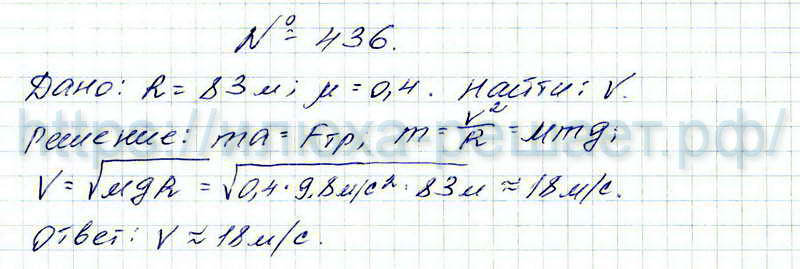 № 436.
Дано: R = 83 м; μ = 0,4. Найти: V.
Решение: ma = Fтр; m = V²/R = μmg;
V = √μgR = √0,4·9,8м/с²·83м ≈ 18м/с.
Ответ: V ≈ 18м/с.